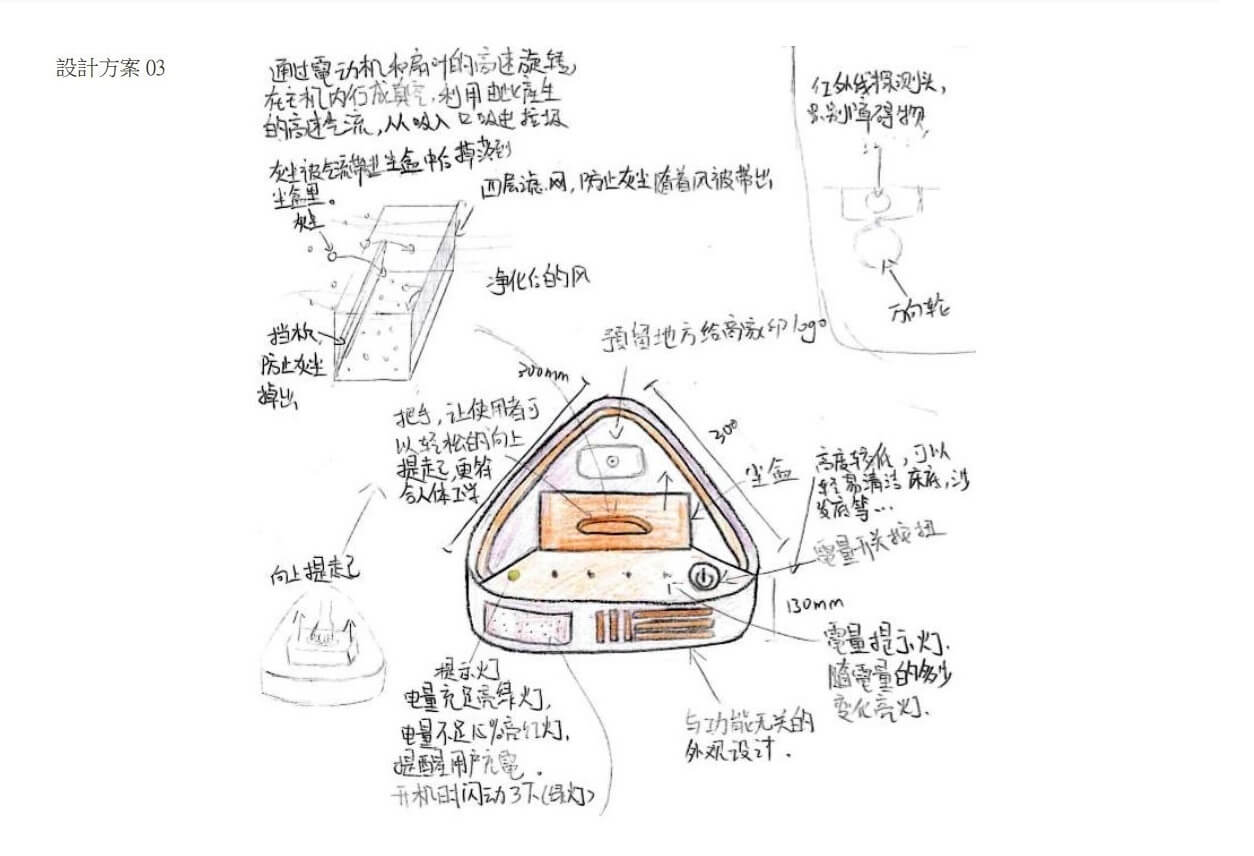 設計方案 03
通过電动机和扇叶的高速旋转,
在主机内行成真空,利用此产生
的高速气流,从吸入口吸进垃圾
灰尘被气流带进尘盒中后掉落到
尘盒里。
灰尘
四层滤网,防止灰尘随着风被带出
净化后的风
挡板,
防止灰尘
掉出
红外线探测头,
识别障碍物,
万向轮
预留地方给商家印logo
300mm
300
把手,让使用者可
以轻松的向上
提起,更符
合人体工学
尘盒
高度较低,可以
轻易清洁床底,沙
发底等...
電量开关按钮
130mm
電量提示灯.
随電量的多少
变化亮灯.
向上提起
提示灯
电量充足亮绿灯,
电量不足15%亮红灯,
提醒用户充電.
开机时闪动3下(绿灯)
与功能无关的
外观设计.